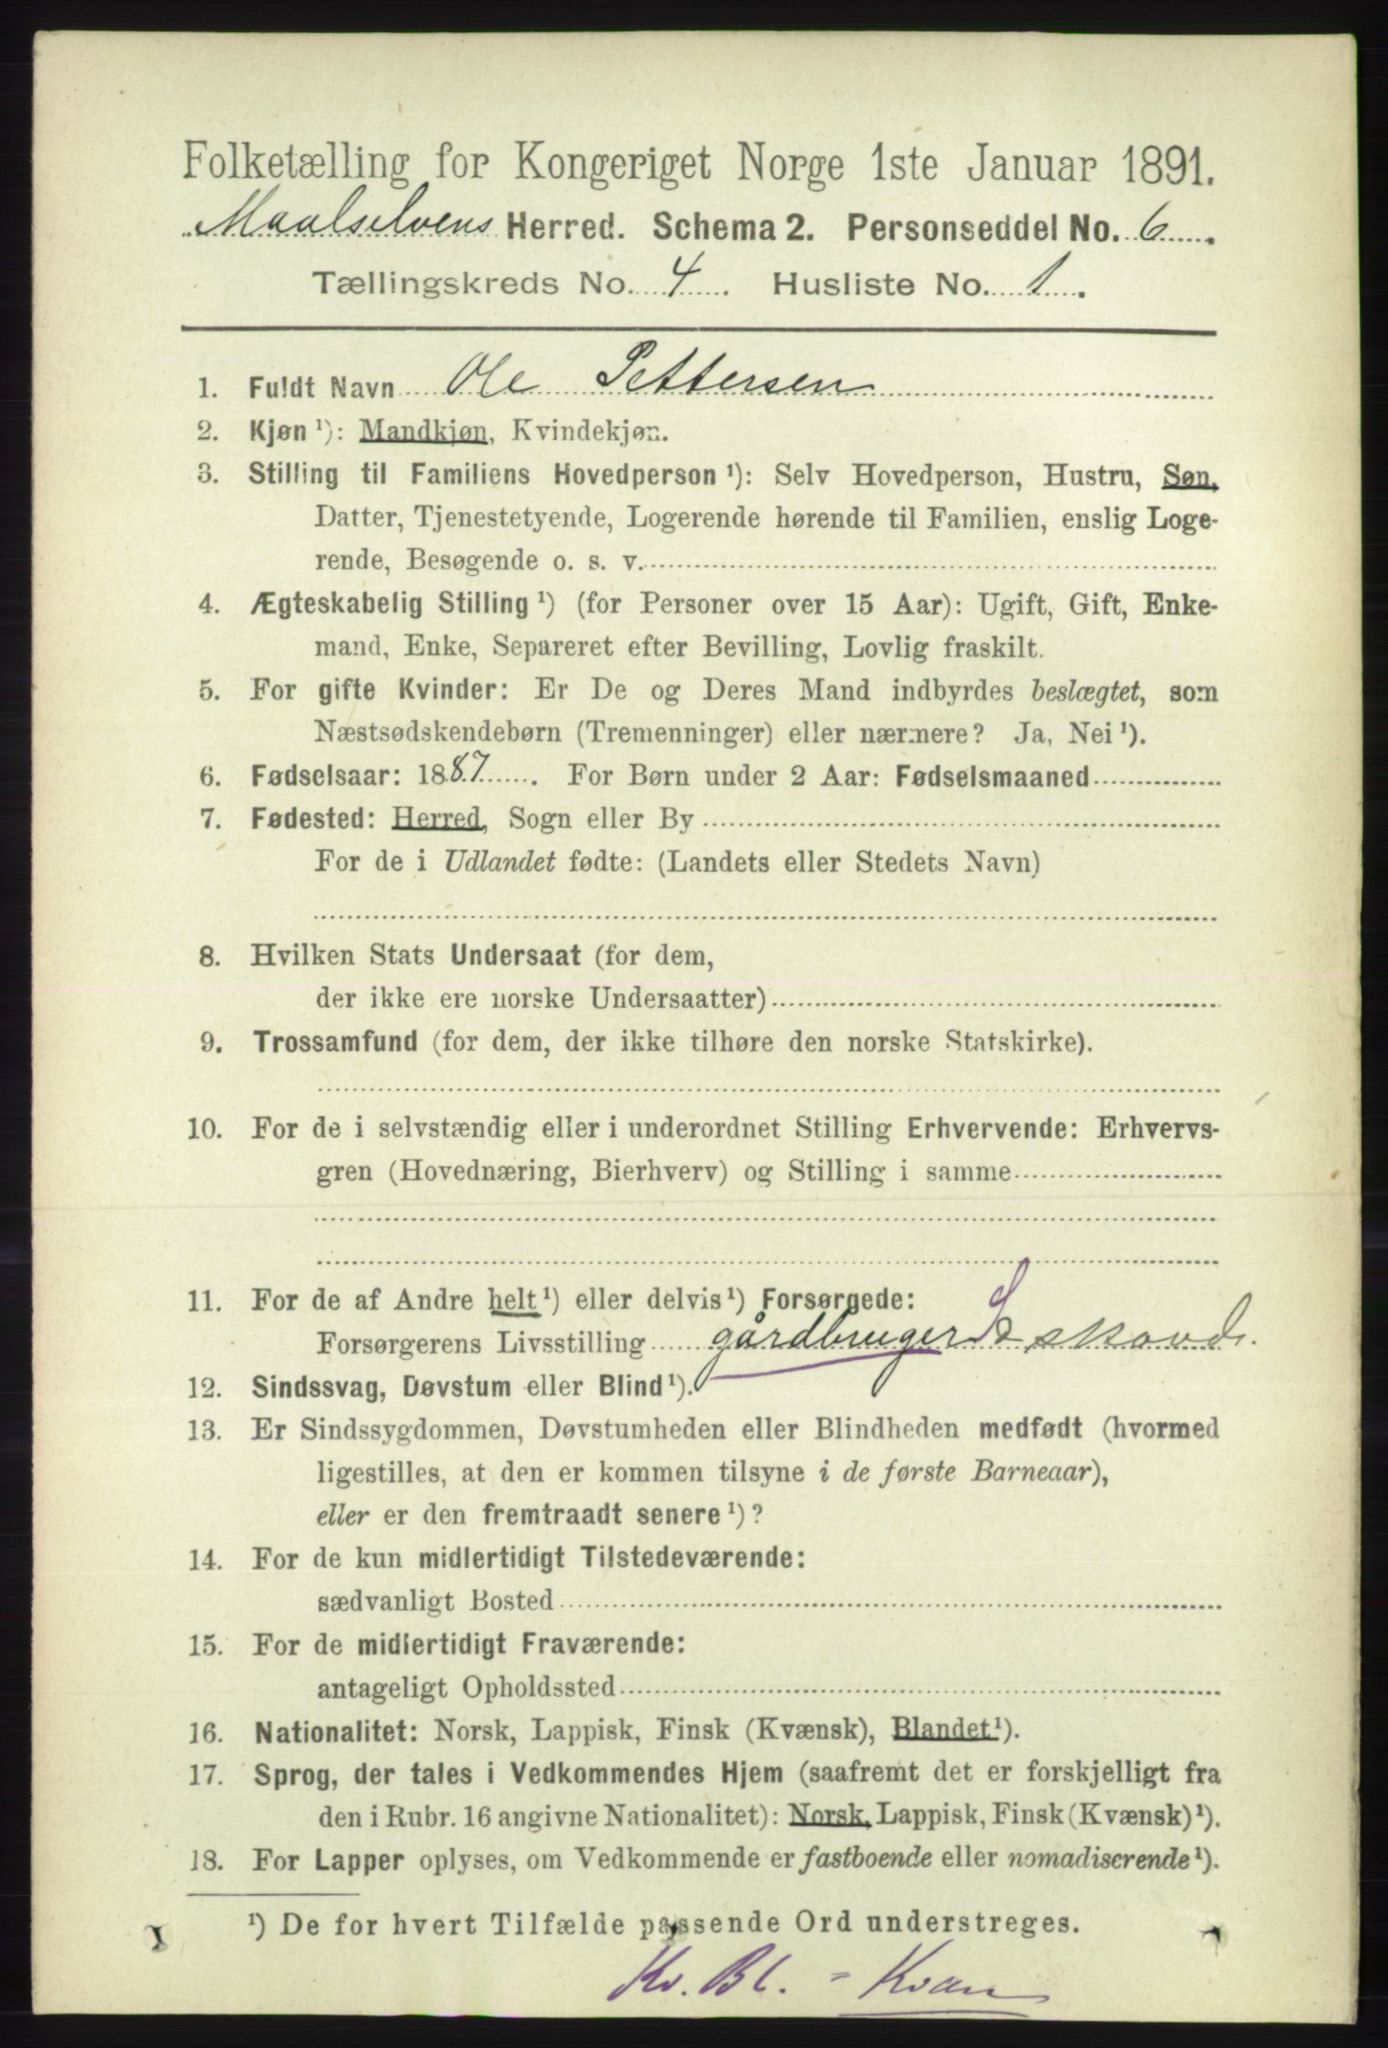 Folketælling for Kongeriget Norge 1ste Januar 1891.
Maalselvens Herred. Schema 2. Personseddel No. 6.
Tællingskreds No. 4. Husliste No. 1.
1. Fuldt Navn Ole Pettersen
2. Kjøn ¹): Mandkjøn, Kvindekjøn.
3. Stilling til Familiens Hovedperson ¹): Selv Hovedperson, Hustru, Søn,
Datter, Tjenestetyende, Logerende hørende til Familien, enslig Loge-
rende, Besøgende o. s. v.
4. Ægteskabelig Stilling ¹) (for Personer over 15 Aar): Ugift, Gift, Enke-
mand, Enke, Separeret efter Bevilling, Lovlig fraskilt.
5. For gifte Kvinder: Er De og Deres Mand indbyrdes beslægtet, som
Næstsødskendebørn (Tremenninger) eller nærmere? Ja, Nei ¹).
6. Fødselsaar: 1887. For Børn under 2 Aar: Fødselsmaaned
7. Fødested: Herred, Sogn eller By
For de i Udlandet fødte: (Landets eller Stedets Navn)
8. Hvilken Stats Undersaat (for dem,
der ikke ere norske Undersaatter)
9. Trossamfund (for dem, der ikke tilhøre den norske Statskirke).
10. For de i selvstændig eller i underordnet Stilling Erhvervende: Erhvervs-
gren (Hovednæring, Bierhverv) og Stilling i samme
11. For de af Andre helt ¹) eller delvis ¹) Forsørgede:
Forsørgerens Livsstilling gårdbruger S skovd.
12. Sindssvag, Døvstum eller Blind ¹).
13. Er Sindssygdommen, Døvstumheden eller Blindheden medfødt (hvormed
ligestilles, at den er kommen tilsyne i de første Barneaar),
eller er den fremtraadt senere ¹)?
14. For de kun midlertidigt Tilstedeværende:
sædvanligt Bosted
15. For de midlertidigt Fraværende:
antageligt Opholdssted
16. Nationalitet: Norsk, Lappisk, Finsk (Kvænsk), Blandet ¹).
17. Sprog, der tales i Vedkommendes Hjem (saafremt det er forskjelligt fra
den i Rubr. 16 angivne Nationalitet): Norsk, Lappisk, Finsk (Kvænsk) ¹).
18. For Lapper oplyses, om Vedkommende er fastboende eller nomadiserende ¹).
¹) De for hvert Tilfælde passende Ord understreges.
Kv. Bl. = Kvæn